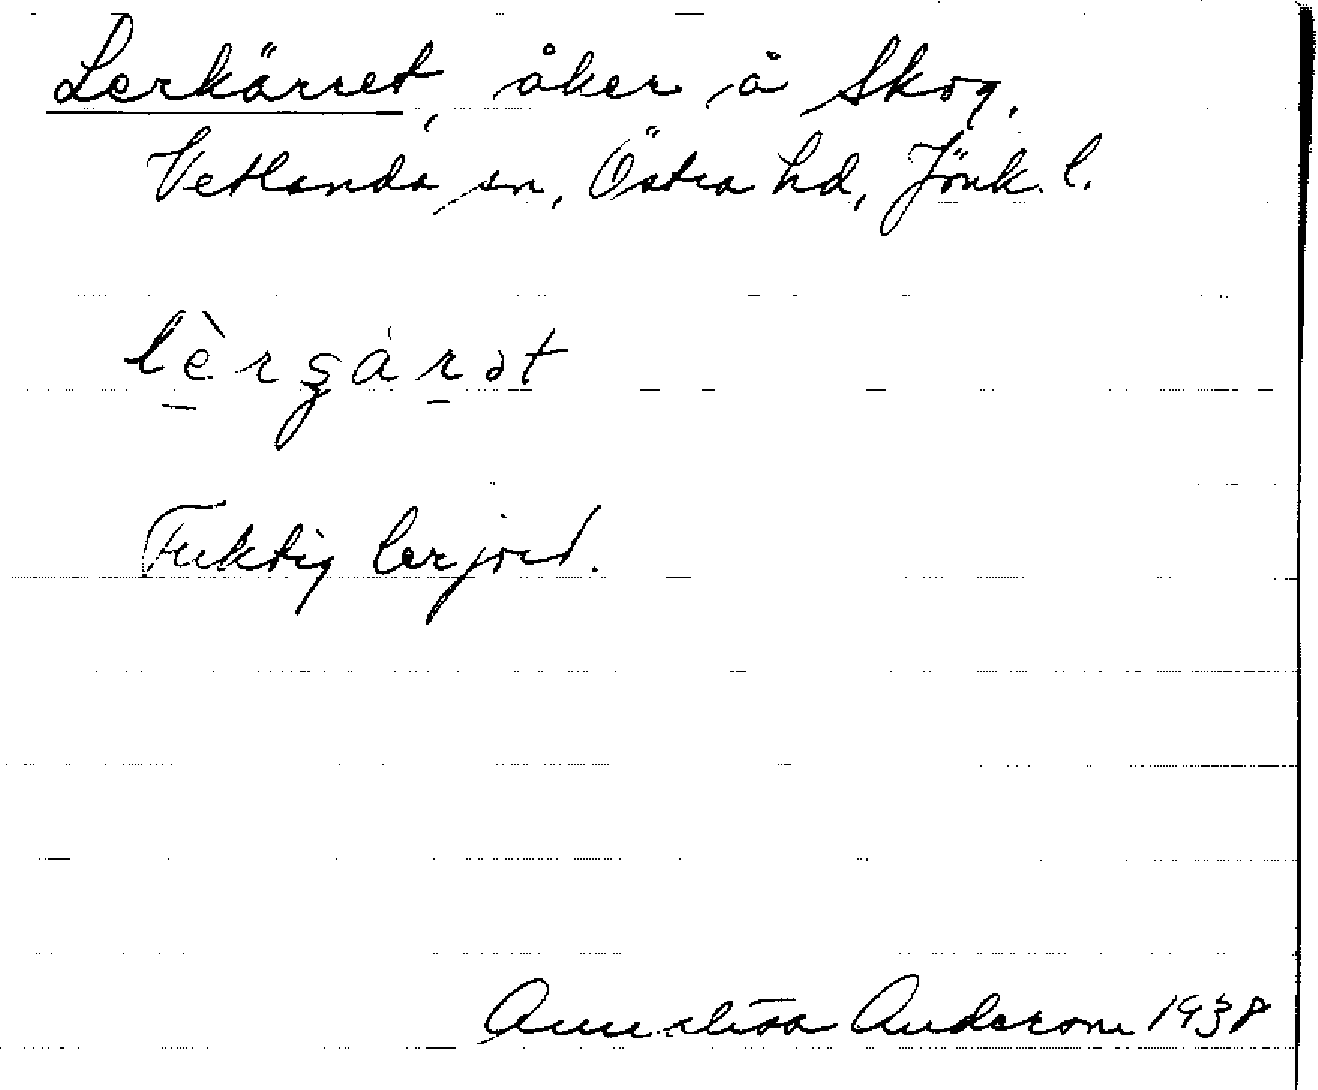 Lerkärret, åker å Skog,
Vetlanda sn, Östra hd, Jönk. l.
lèrʂárət
Fuktig lerjord.
Anna-Lisa Anderson 1938